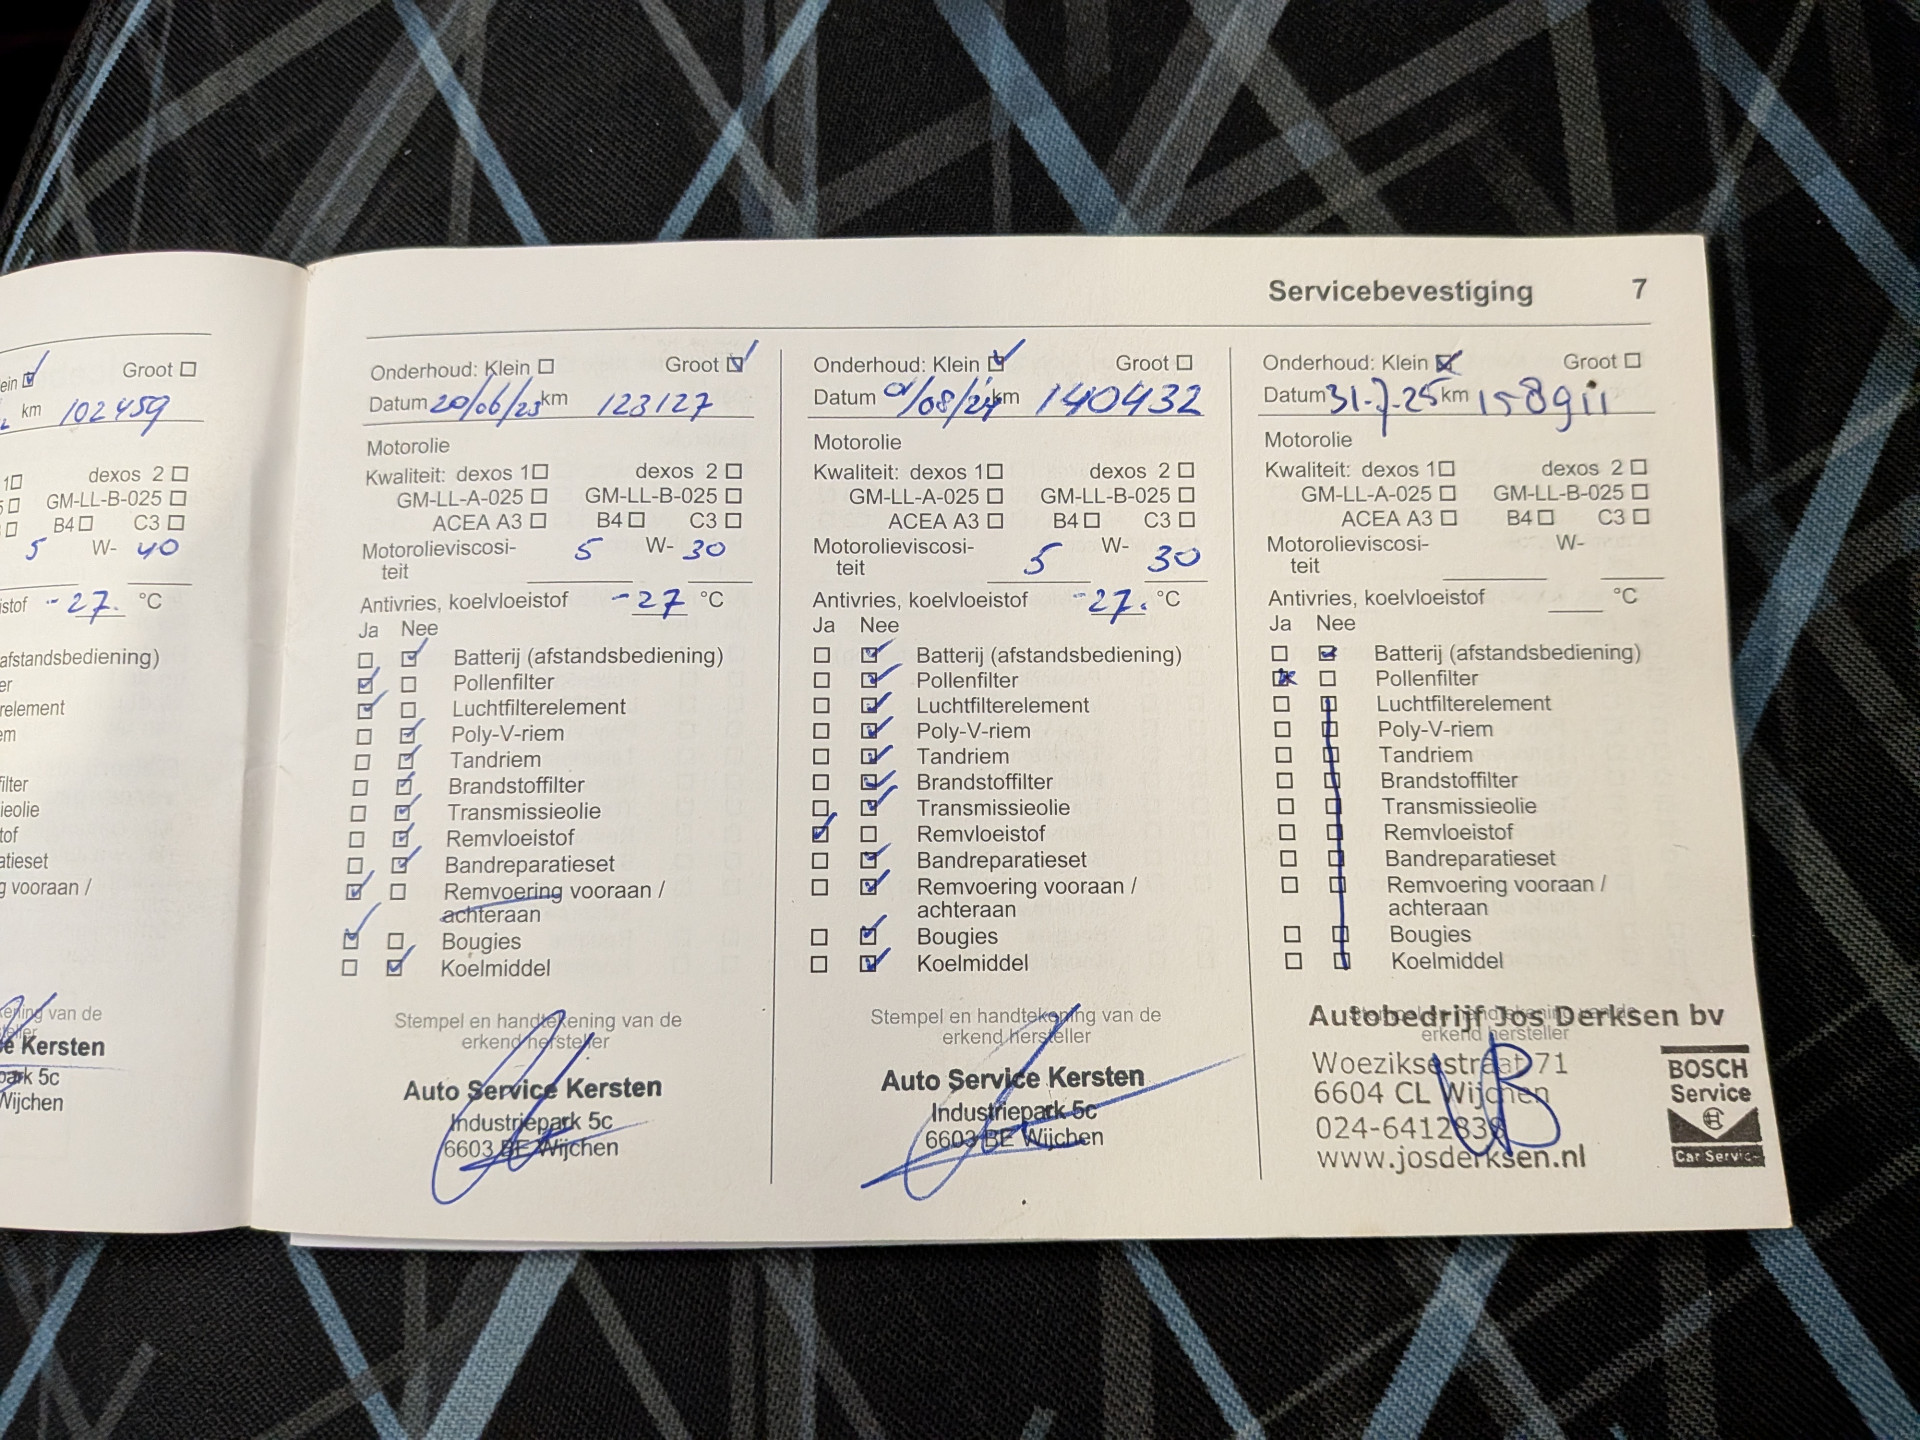 ein Groot
km 102459
1 dexos 2
GM-LL-B-025
B4 C3
5 W- 40
stof -27. °C
afstandsbediening)
er
relement
em
filter
ieolie
tof
atieset
g vooraan /
kening van de
steller
e Kersten
park 5c
Wijchen
Servicebevestiging 7
Onderhoud: Klein Groot
Datum 20/06/23 km 123127
Motorolie
Kwaliteit: dexos 1 dexos 2
GM-LL-A-025 GM-LL-B-025
ACEA A3 B4 C3
Motorolieviscosi-
teit 5 W- 30
Antivries, koelvloeistof -27 °C
Ja Nee
Batterij (afstandsbediening)
Pollenfilter
Luchtfilterelement
Poly-V-riem
Tandriem
Brandstoffilter
Transmissieolie
Remvloeistof
Bandreparatieset
Remvoering vooraan /
achteraan
Bougies
Koelmiddel
Stempel en handtekening van de
erkend hersteller
Auto Service Kersten
Industriepark 5c
6603 BE Wijchen
Onderhoud: Klein Groot
Datum 01/08/24 km 140432
Motorolie
Kwaliteit: dexos 1 dexos 2
GM-LL-A-025 GM-LL-B-025
ACEA A3 B4 C3
Motorolieviscosi-
teit 5 W- 30
Antivries, koelvloeistof -27. °C
Ja Nee
Batterij (afstandsbediening)
Pollenfilter
Luchtfilterelement
Poly-V-riem
Tandriem
Brandstoffilter
Transmissieolie
Remvloeistof
Bandreparatieset
Remvoering vooraan /
achteraan
Bougies
Koelmiddel
Stempel en handtekening van de
erkend hersteller
Auto Service Kersten
Industriepark 5c
6603 BE Wijchen
Onderhoud: Klein Groot
Datum 31-7-25 km 158911
Motorolie
Kwaliteit: dexos 1 dexos 2
GM-LL-A-025 GM-LL-B-025
ACEA A3 B4 C3
Motorolieviscosi-
teit W-
Antivries, koelvloeistof °C
Ja Nee
Batterij (afstandsbediening)
Pollenfilter
Luchtfilterelement
Poly-V-riem
Tandriem
Brandstoffilter
Transmissieolie
Remvloeistof
Bandreparatieset
Remvoering vooraan /
achteraan
Bougies
Koelmiddel
Stempel en handtekening van de
erkend hersteller
Autobedrijf Jos Derksen bv
Woeziksestraat 71
6604 CL Wijchen
www.josderksen.nl
BOSCH
Service
Car Service